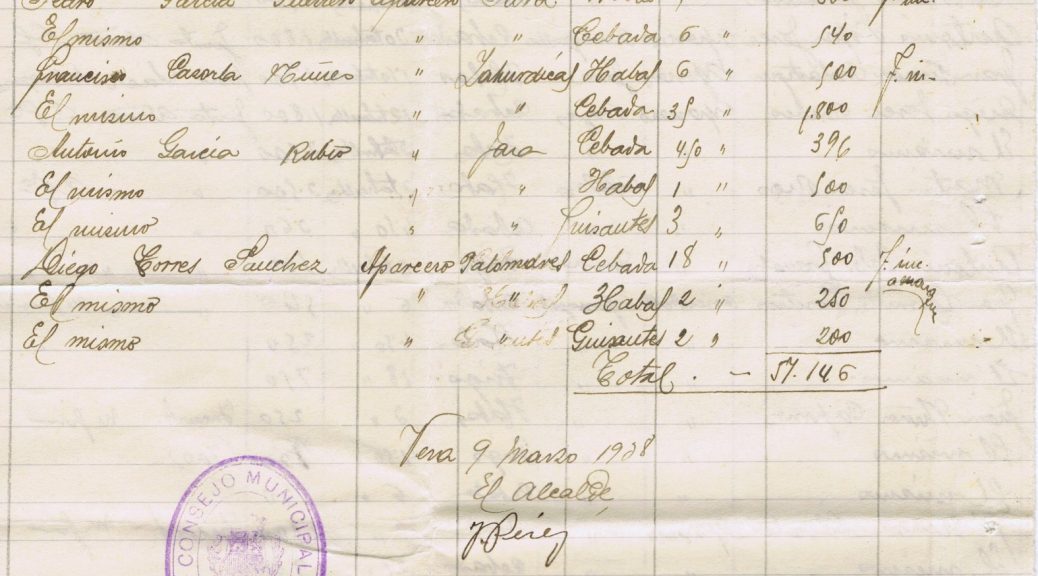 Pedro García Guerrero Aparcero Jara
El mismo " " Cebada 6 " 540
Francisco Casorla Núñes " Jahurdicas Habas 6 " 500 F. in.
El mismo " " Cebada 35 " 1.800
Antonio García Rubio " Jara Cebada 4.50 " 396
El mismo " " Habas 1 " 500
El mismo " " Guisantes 3 " 650
Diego Torres Sanchez Aparcero Palomares Cebada 18 " 500 F. in.
El mismo " " Habas 2 " 250
El mismo " " Guisantes 2 " 200
Total . - 57.146
Vera 9 Marzo 1938
El Alcalde
J. Pérez
CONSEJO MUNICIPAL